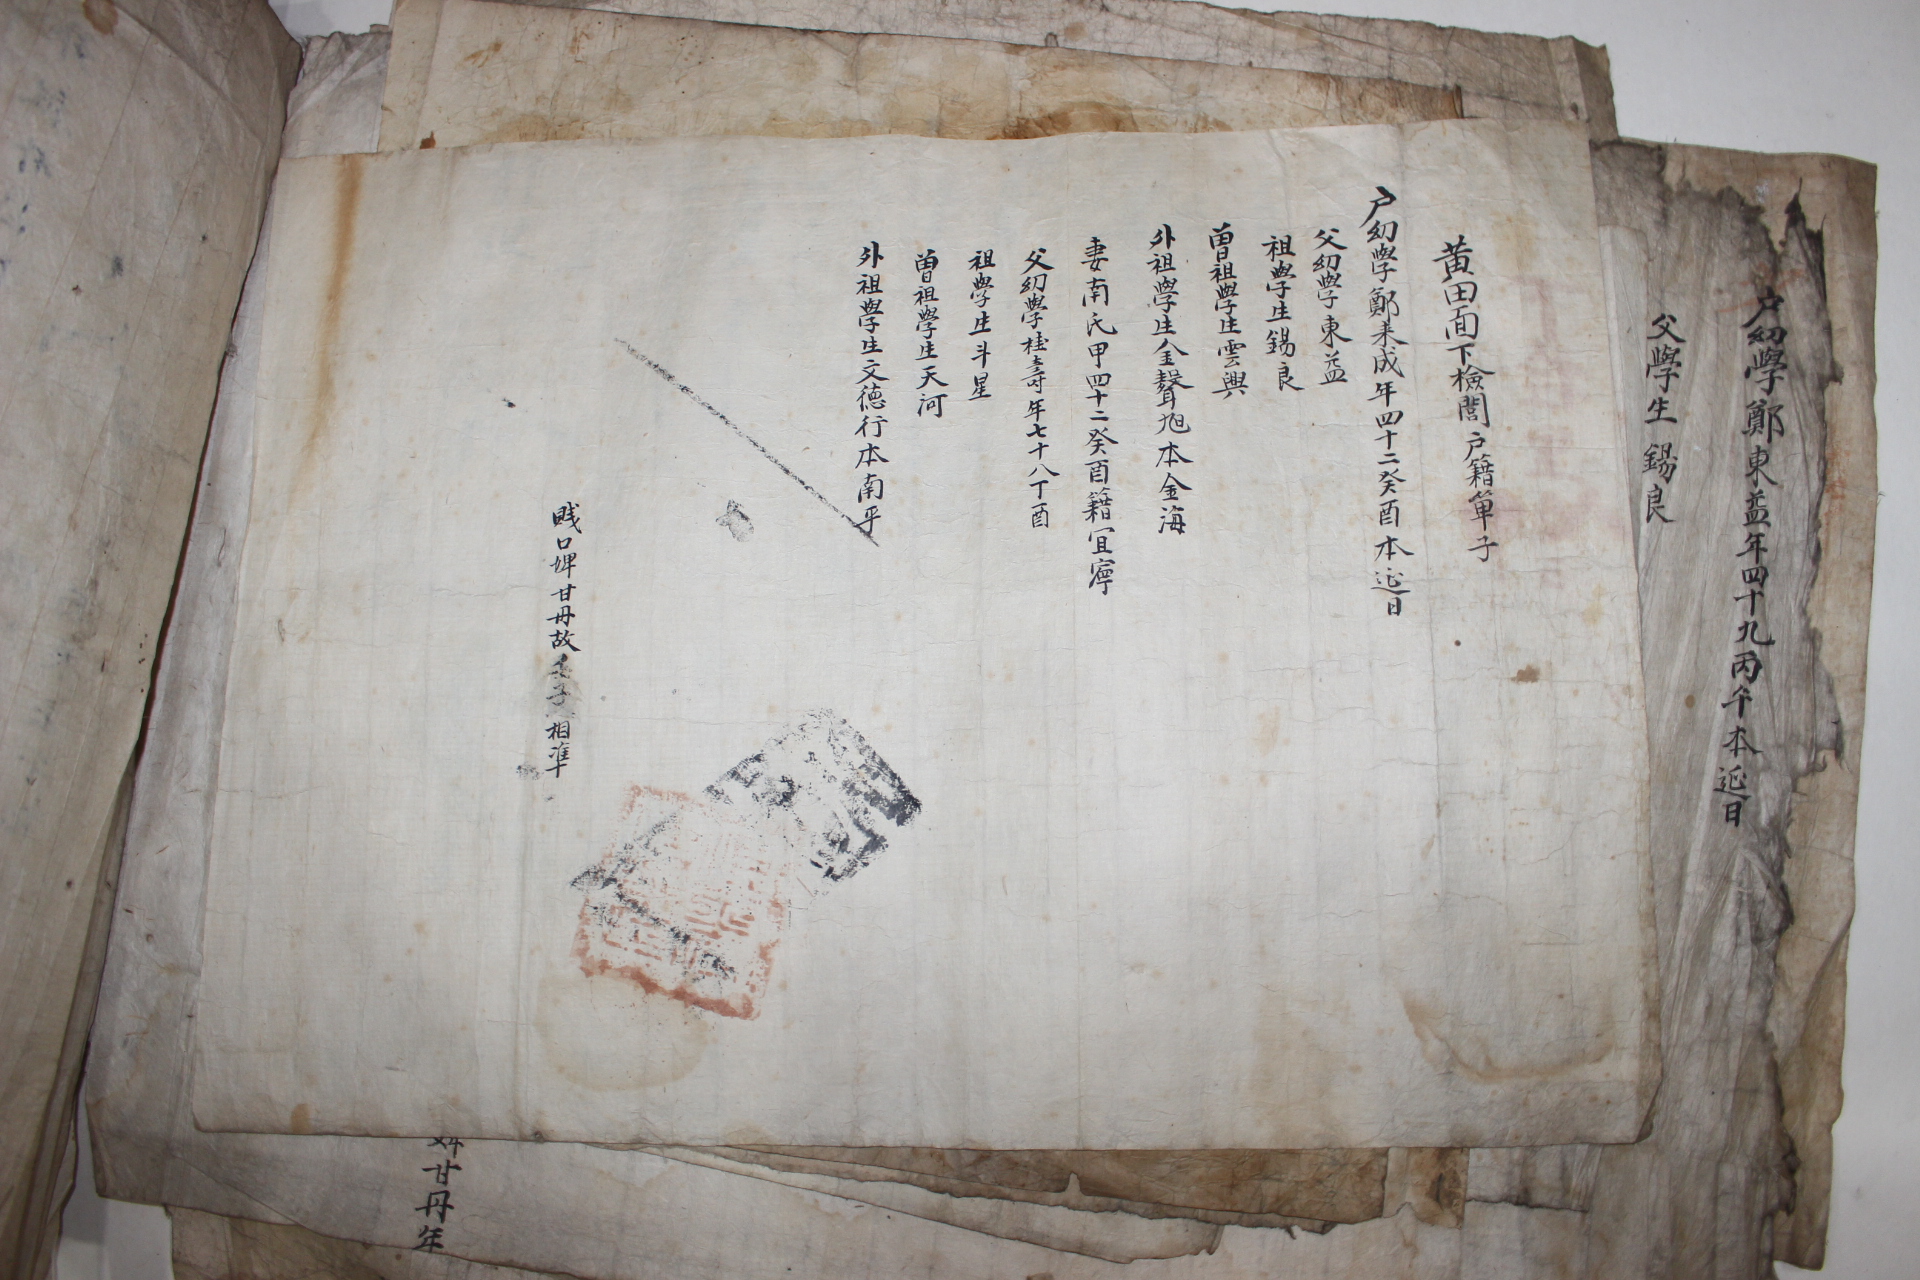 戶幼學鄭東益年四十九丙午本延日
父學生錫良
黃田面下檢誾戶籍單子
戶幼學鄭來成年四十二癸酉本延日
父幼學東益
祖學生錫良
曾祖學生雲興
外祖學生金聲旭本金海
妻南氏甲四十二癸酉籍宜寧
父幼學桂壽年七十八丁酉
祖學生斗星
曾祖學生天河
外祖學生文德行本南平
賤口婢甘丹故壬子相準
婢甘丹年